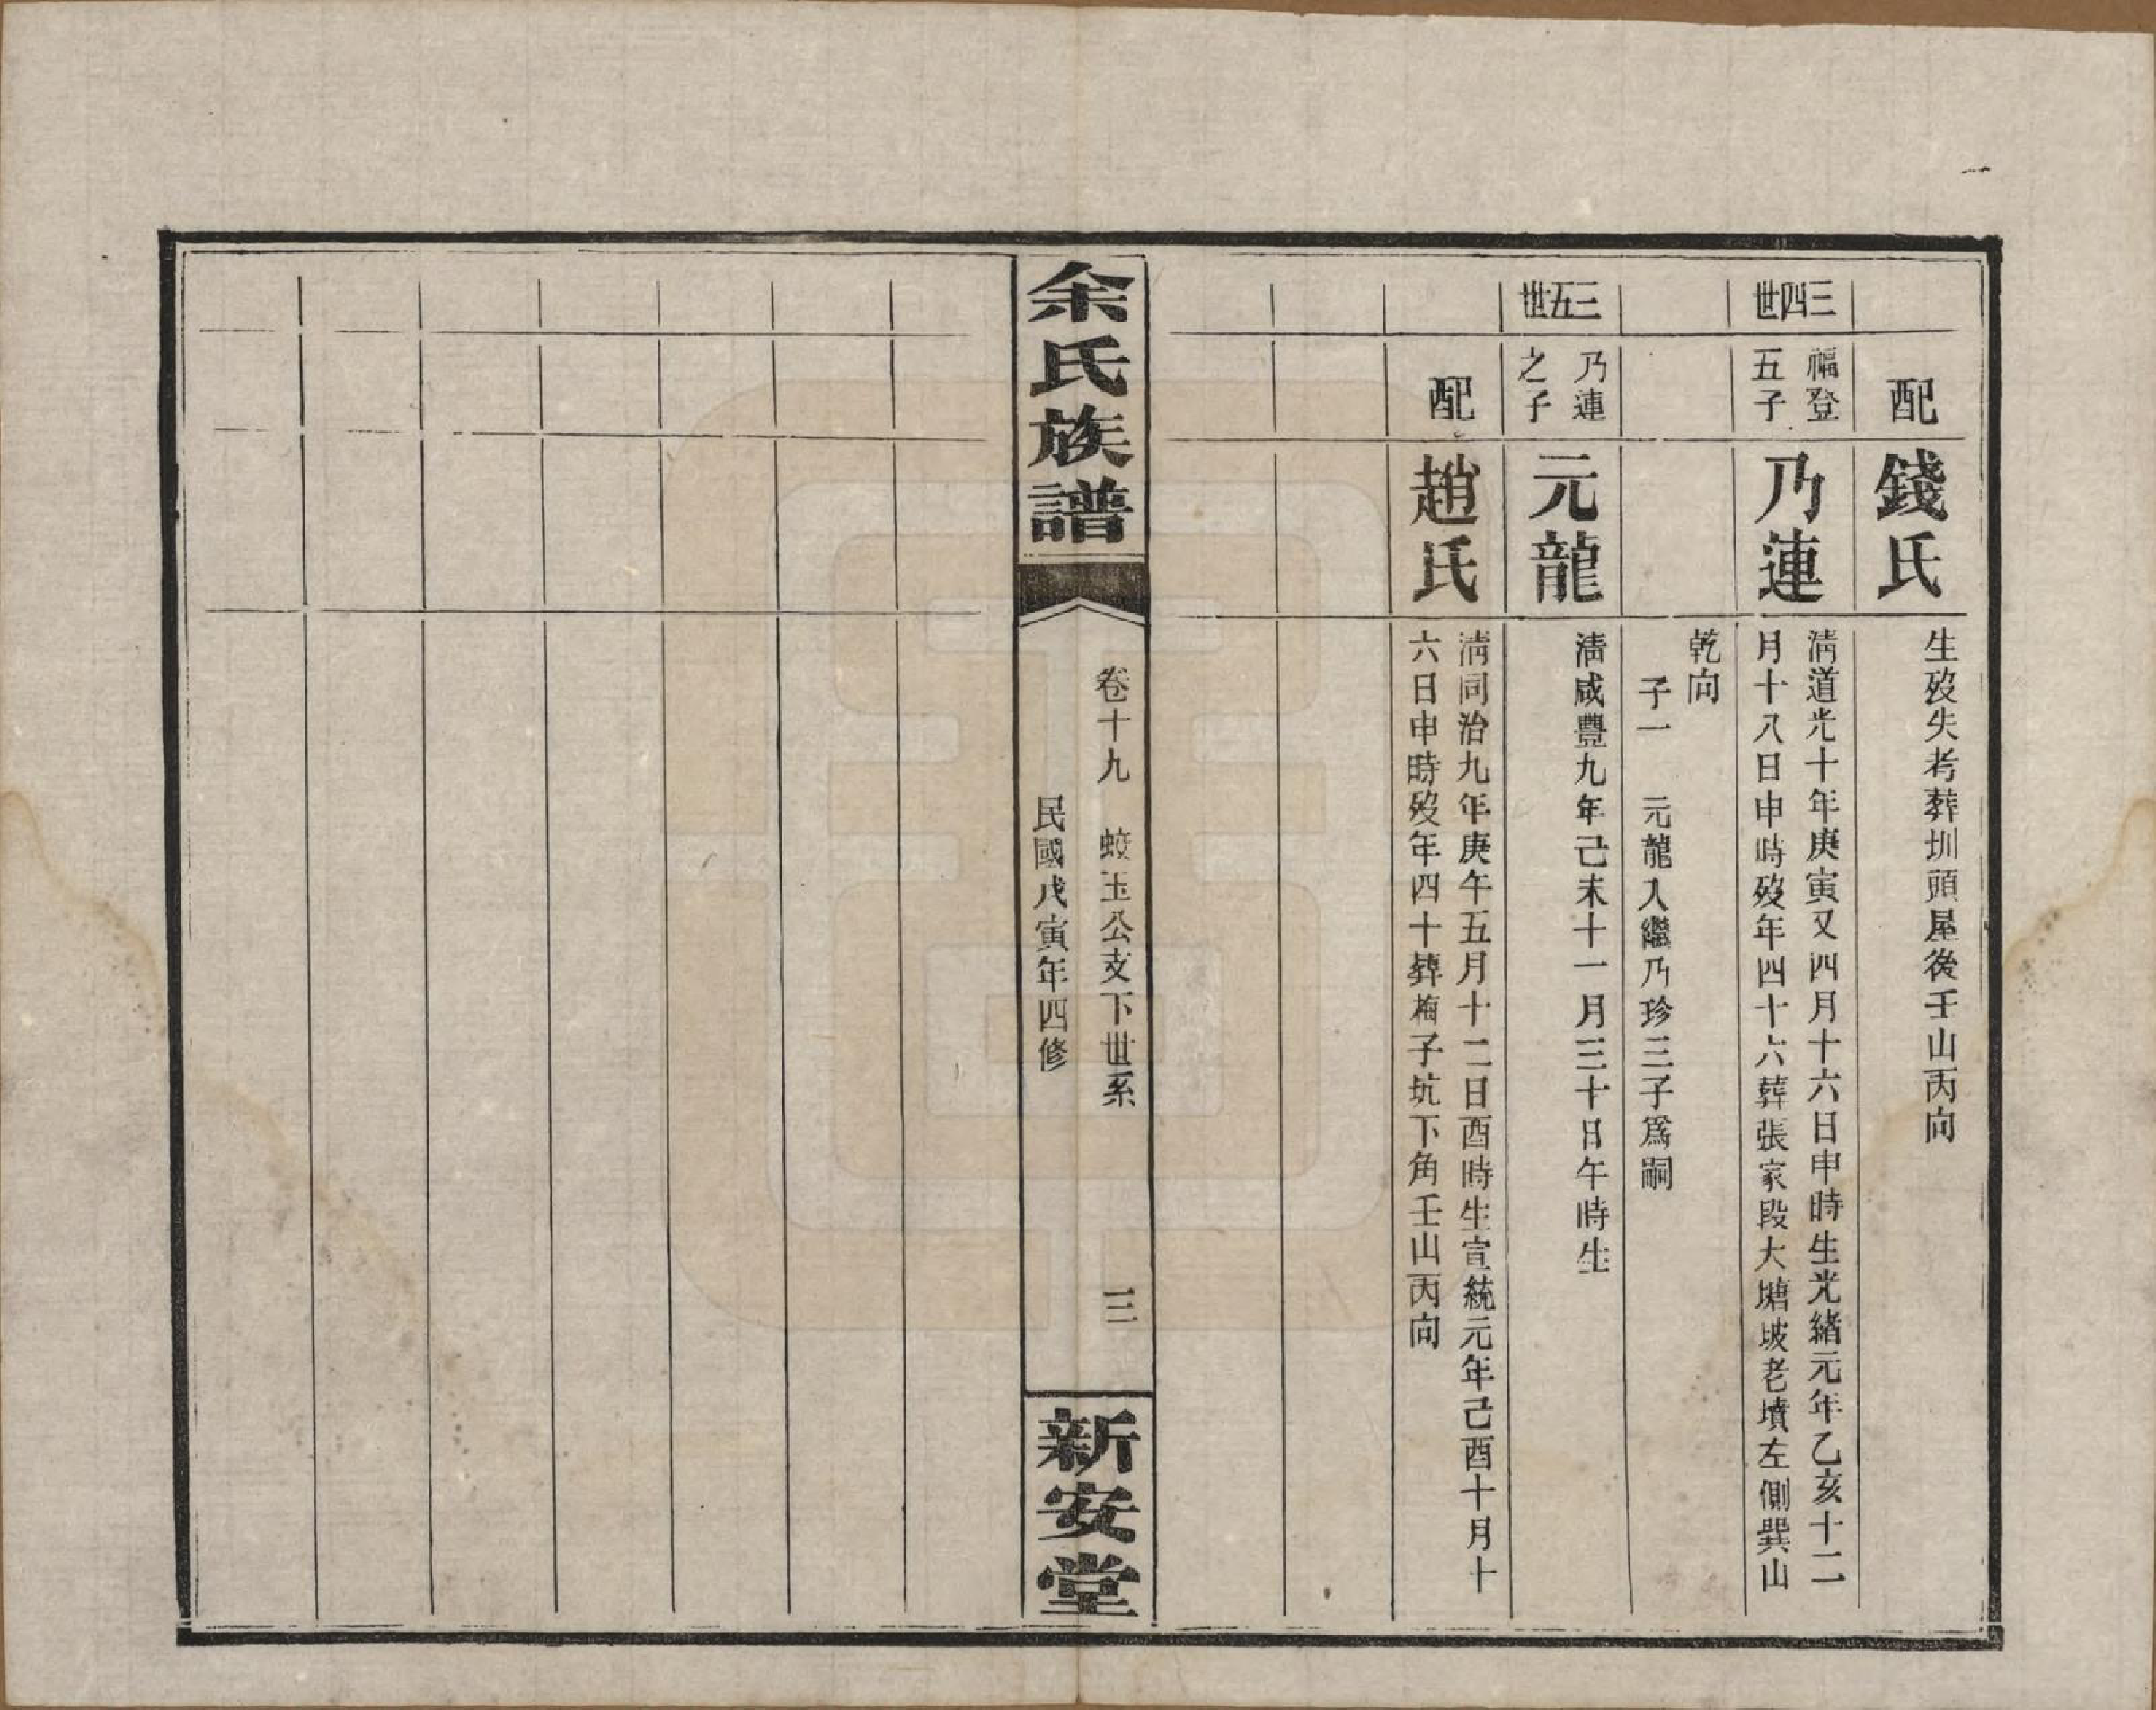 配
錢氏
生歿失考葬圳頭屋後壬山丙向
三四世
福登
五子
乃連
淸道光十年庚寅又四月十六日申時生光緒元年乙亥十二
月十八日申時歿年四十六葬張家段大塘坡老墳左側巽山
乾向
子一　元龍入繼乃珍三子爲嗣
三五世
乃連
之子
元龍
淸咸豐九年己未十一月三十日午時生
配
趙氏
淸同治九年庚午五月十二日酉時生宣統元年己酉十月十
六日申時歿年四十葬梅子坑下角壬山丙向
余氏族譜
卷十九　蛟玉公支下世系　三
民國戊寅年四修
新安堂